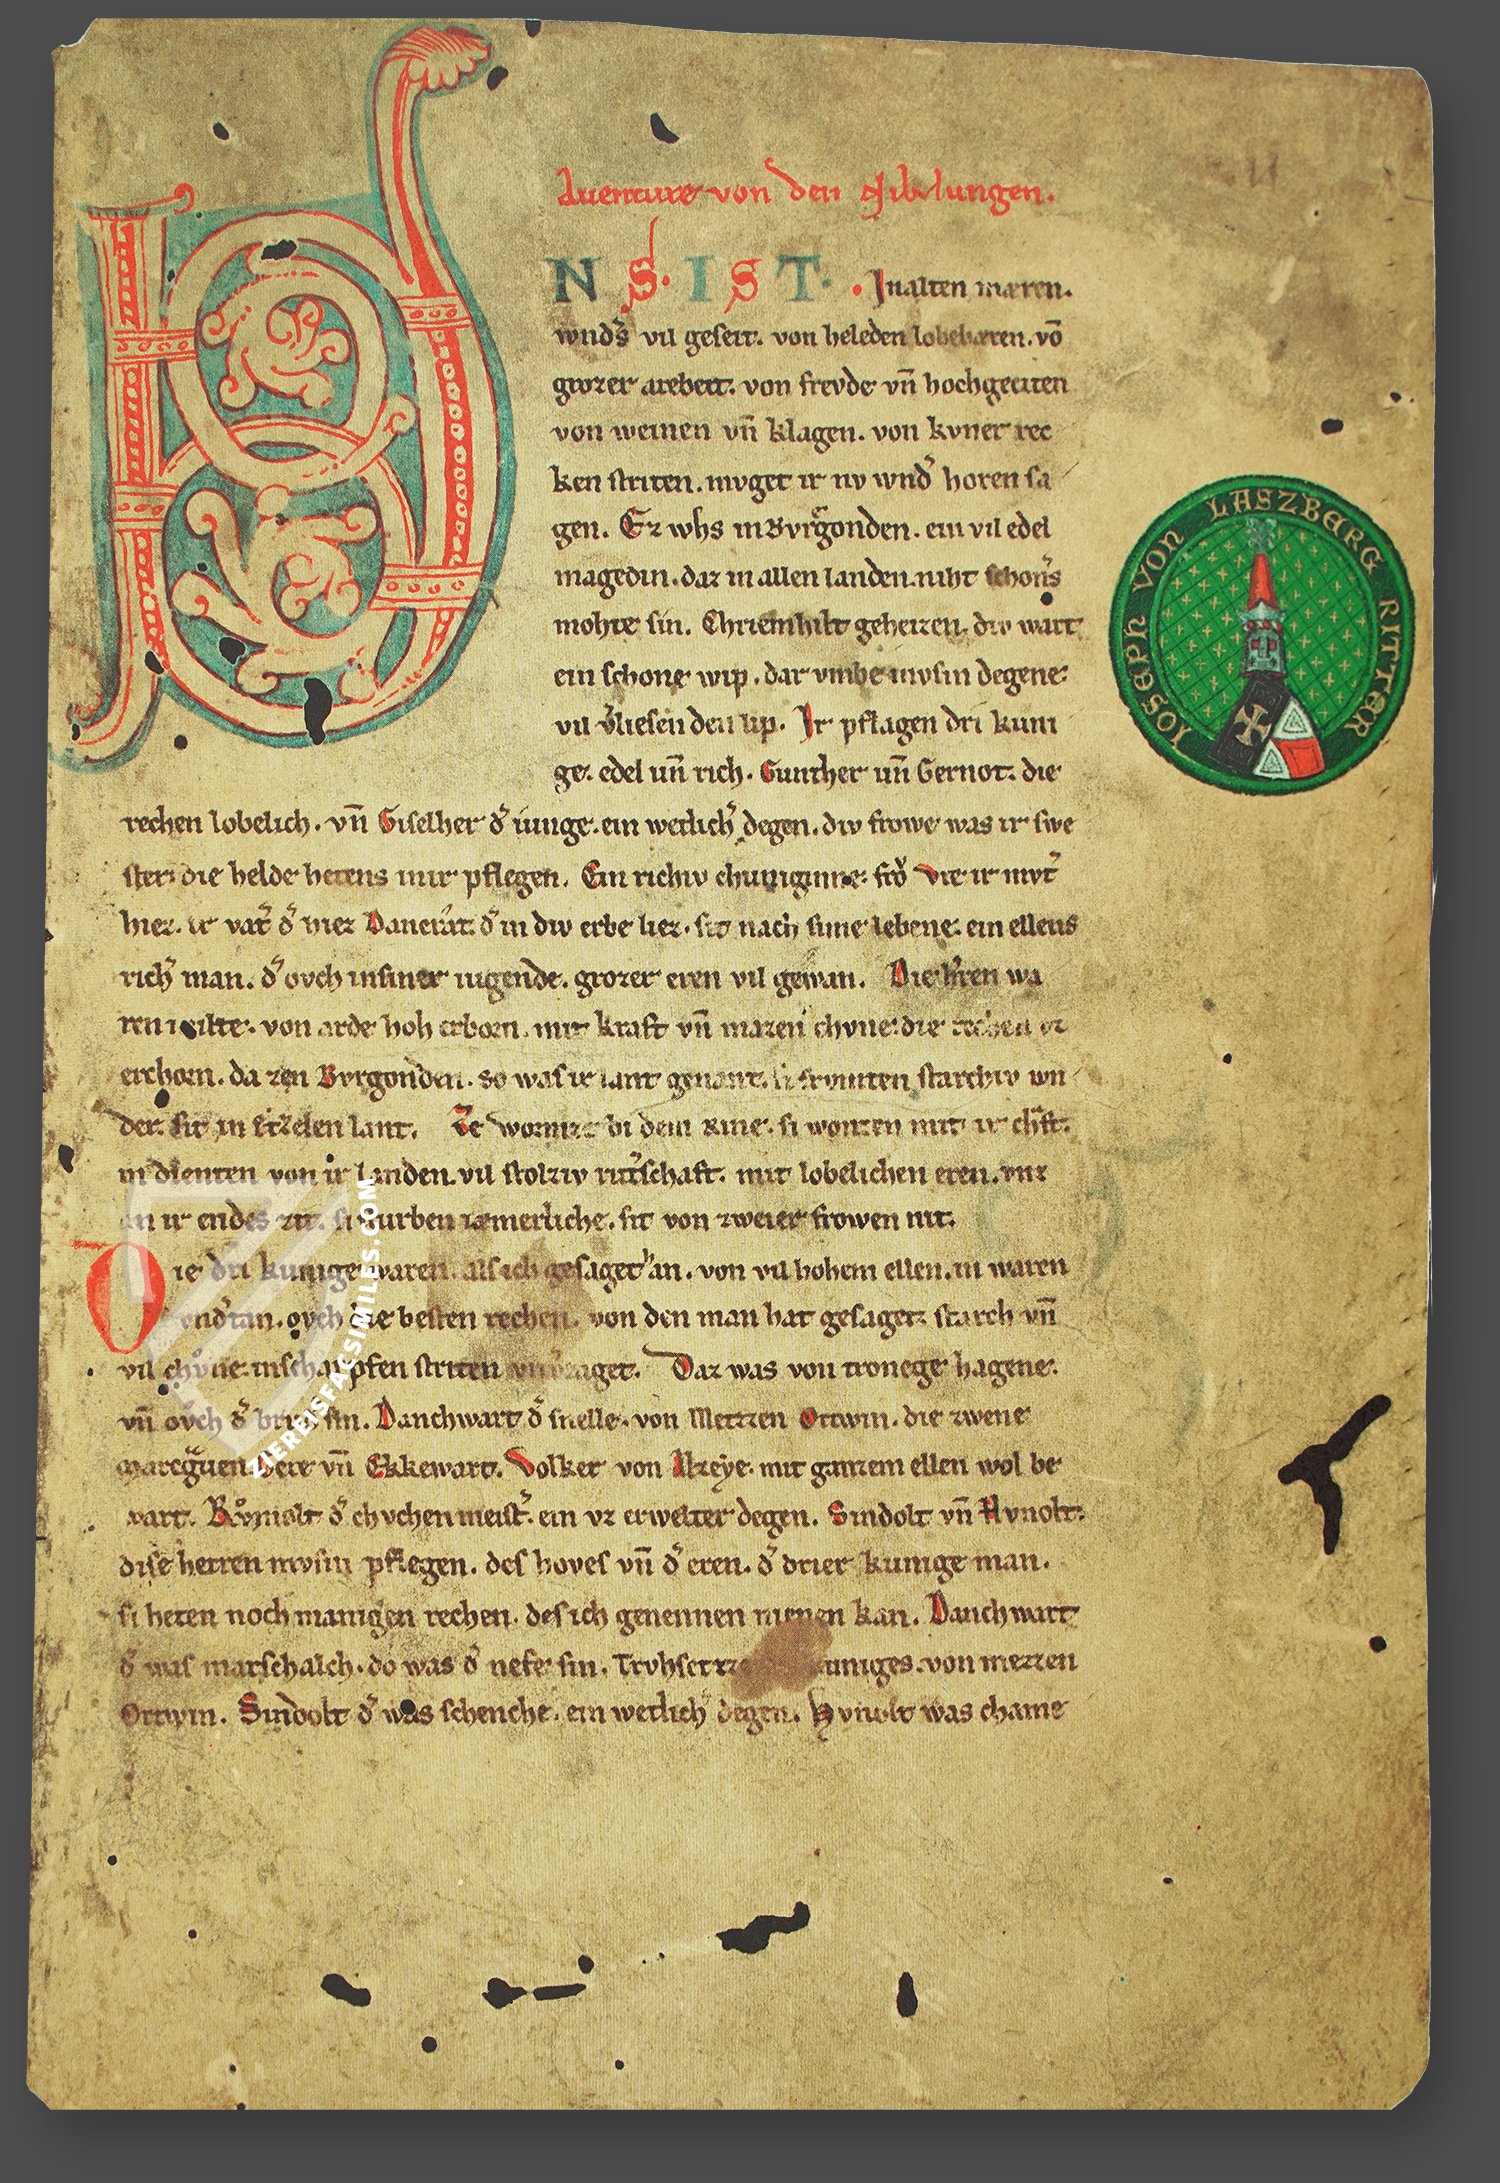 Auenture von den Nibelungen.
VNS. IST. Jnalten mæren.
wnds̃ vil geseit. von heleden lobebæren. vō
grozer arebeit. von frevde vn̄ hochgeciten
von weinen vn̄ klagen. von kvner rec
ken striten. mvget ir nv wnd͛ horen sa
gen. Ez whs in Bvrgonden. ein vil edel
magedin. daz in allen landen. niht schon͛s
mohte sin. Chriemhilt geheizen. div wart
ein schone wip. dar vmbe mvsin degene
vil v͛liesen den lip. Ir pflagen dri kuni
ge. edel un̄ rich. Gunther un̄ Gernot. die
rechen lobelich. vn̄ Giselher d͛ iunge. ein wetlich͛ degen. div frowe was ir swe
ster. die helde hetens mir pflegen. Ein richiv chuniginne. frŏ Vte ir mvt͛
hiez. ir vat͛ d͛ hiez Dancrat. d͛ in div erbe liez. sit nach sime lebene. ein ellens
rich͛ man. d͛ ovch in siner iugende. grozer eren vil gewan. Die h͛ren wa
ren milte. von arde hoh erborn. mit kraft vn̄ mazen chvne. die rechen vz
erchorn. da zen Bvrgonden. so was ir lant genant. si frvmten starchiv wn
der. sit in Etzelen lant. Ze Wormze bi dem Rine. si wonten mit ir ch͛ft.
in dienten von ir landen. vil stolziv rit͛schaft. mit lobelichen eren. vnz
an ir endes zit. si sturben iæmerliche. sit von zweier frowen nit.
Die dri kunige waren. als ich gesaget han. von vil hohem ellen. in waren
vnd͛tan. ovch die besten rechen. von den man hat gesaget. starch vn̄
vil chvͦne. in scharpfen striten vnv͛zaget. Daz was von tronege hagene.
vn̄ ovch d͛ brvd͛ sin. Danchwart d͛ snelle. von Metzen Ortwin. die zwene
marcg͛uen. Gere vn̄ Ekkewart. Volker von Alzeye. mit ganzem ellen wol be
wart. Rvͦmolt d͛ chvchenmeist͛. ein vz erwelter degen. Sindolt vn̄ Hvnolt.
dise herren mvsin pflegen. des hoves vn̄ d͛ eren. d͛ drier kunige man.
si heten noch manigen rechen. des ich genennen nienen kan. Danchwart
d͛ was marschalch. do was d͛ nefe sin. Trvhsetze kuniges. von metzen
Ortwin. Sindolt d͛ was schenche. ein wetlich͛ degen. Hvnolt was chame
JOSEPH VON LASZBERG RITTER
ZIEREISFACSIMILES.COM